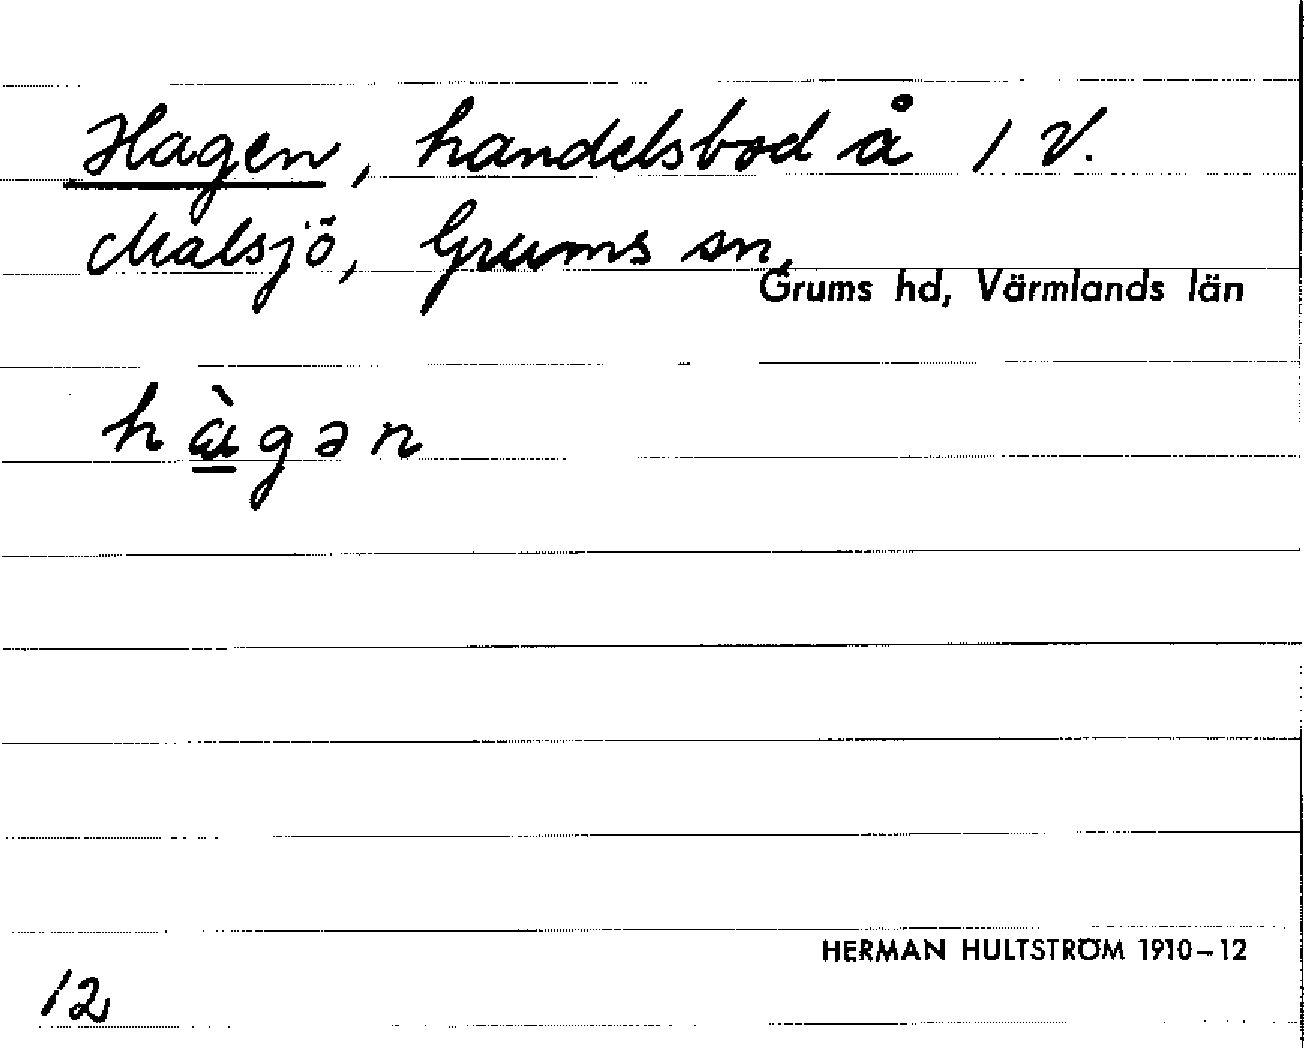 Hagen, handelsbod å 1 V.
Malsjö, Grums sn,
Grums hd, Värmlands län
hàgən
HERMAN HULTSTRÖM 1910–12
12